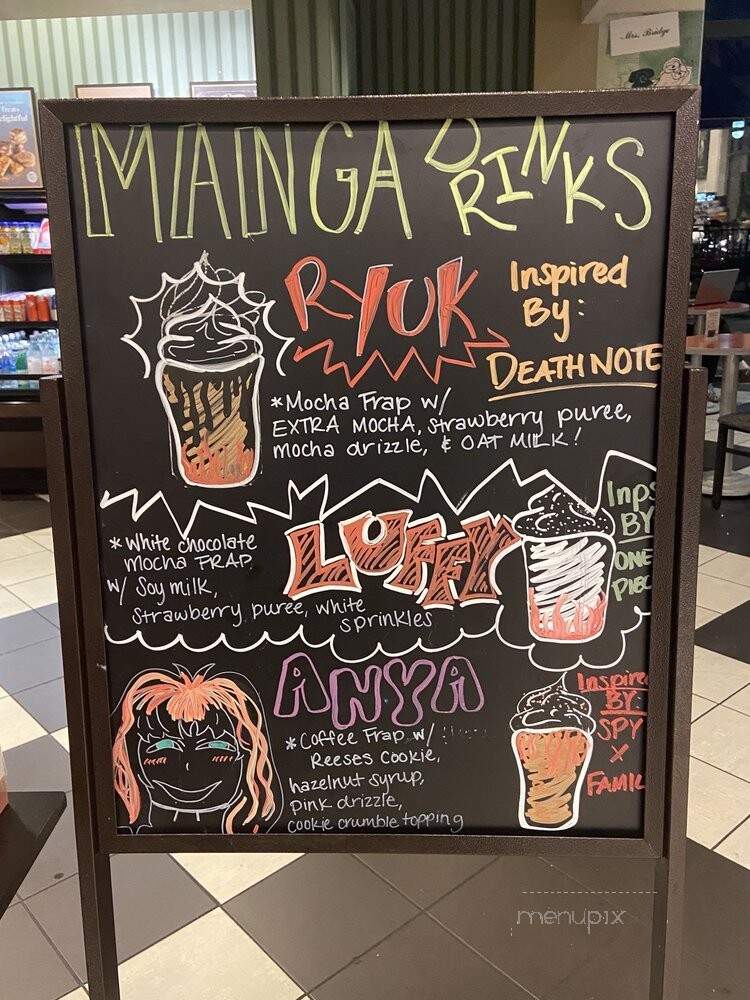 Mrs. Bridge
MANGA DRINKS
RYUK
Inspired
By:
DEATH NOTE
*Mocha Frap w/
EXTRA MOCHA, strawberry puree,
mocha drizzle, & OAT MILK!
LUFFY
Inps
BY
ONE
PIEC
* White chocolate
mocha FRAP
w/ Soy milk,
strawberry puree, white
sprinkles
ANYA
Inspire
BY
SPY
X
FAMIL
* Coffee Frap w/
Reeses Cookie,
hazelnut syrup,
pink drizzle,
cookie crumble topping
menupix